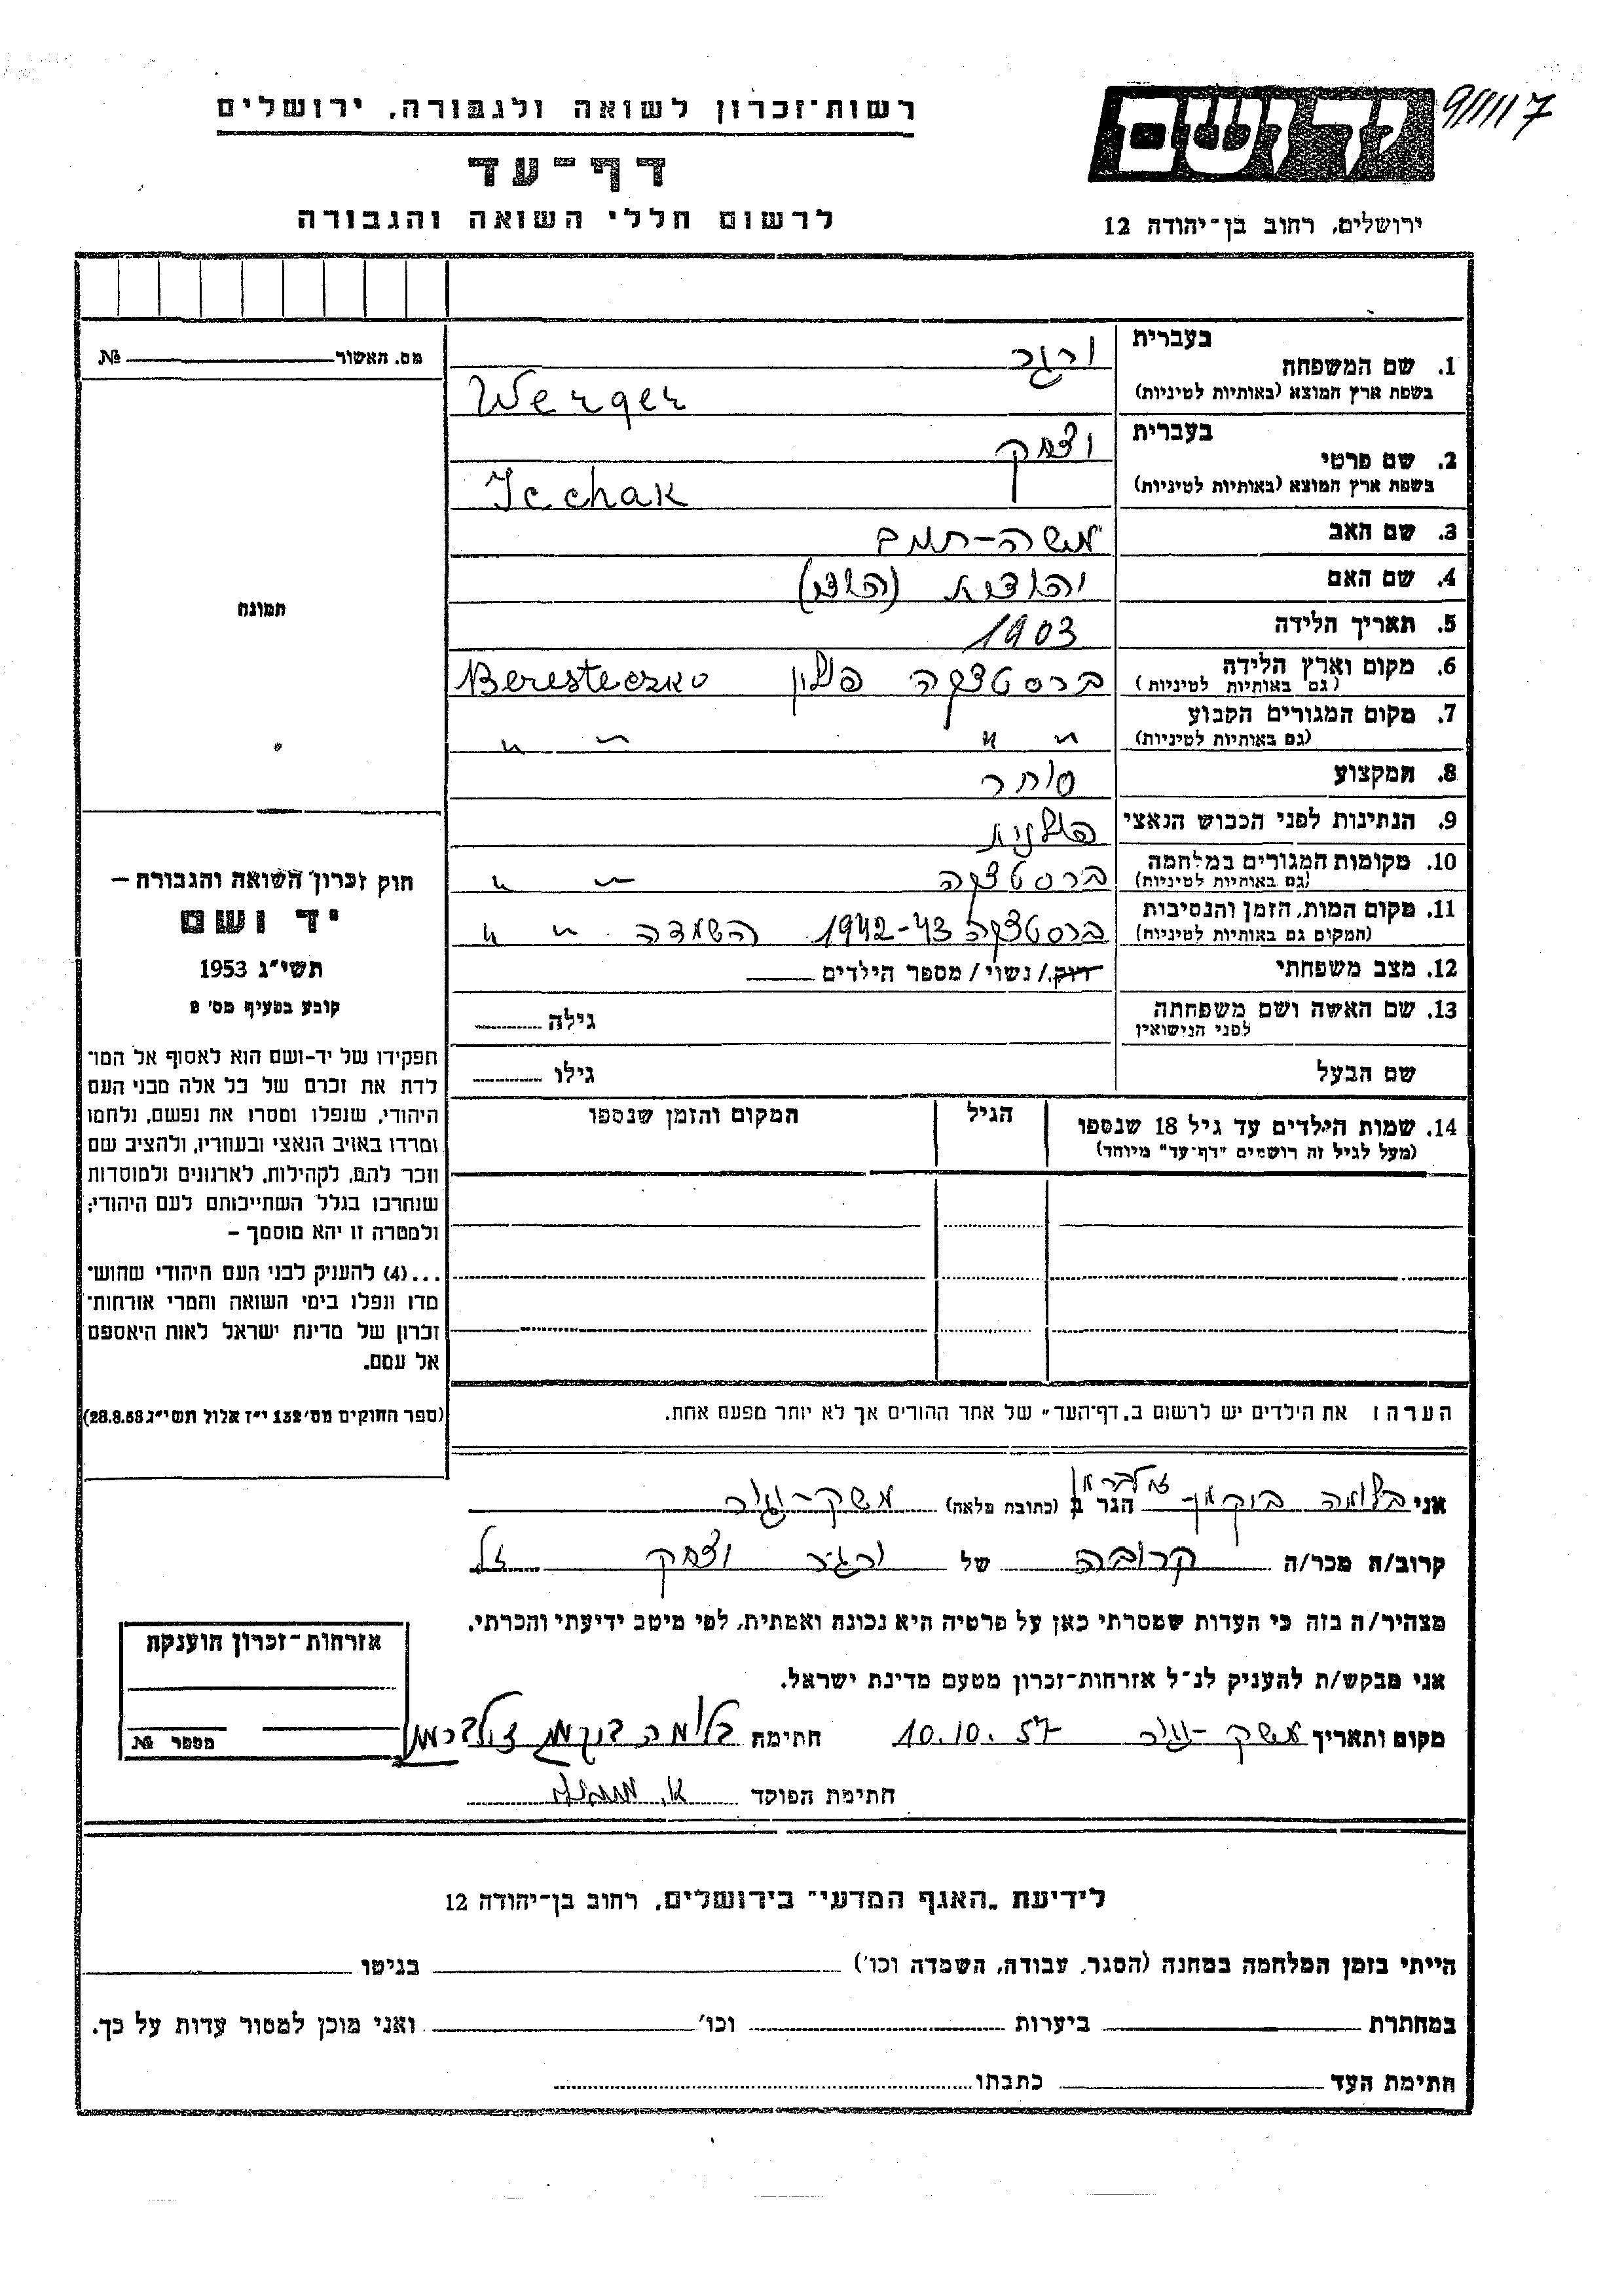 רשות־זכרון לשואה ולגבורה, ירושלים
דף־עד
לרשום חללי השואה והגבורה
יד ושם
ירושלים, רחוב בן־יהודה 12
מס. האשור № 
בעברית
1. שם המשפחה ורגר
בשפת ארץ המוצא (באותיות לטיניות) Werger
בעברית
2. שם פרטי יצחק
בשפת ארץ המוצא (באותיות לטיניות) Icchak
3. שם האב משה-
4. שם האם יהודית
5. תאריך הלידה 1903
6. מקום וארץ הלידה ברסטצקה פולין Beresteczko
(גם באותיות לטיניות)
7. מקום המגורים הקבוע " " " "
(גם באותיות לטיניות)
8. המקצוע סוחר
9. הנתינות לפני הכבוש הנאצי פולנית
10. מקומות המגורים במלחמה ברסטצקה " "
(גם באותיות לטיניות)
11. מקום המות, הזמן והנסיבות ברסטצקה 1942-43 השמדה " "
(המקום גם באותיות לטיניות)
12. מצב משפחתי רווק / נשוי / מספר הילדים
13. שם האשה ושם משפחתה גילה
לפני הנישואין
שם הבעל גילו
14. שמות הילדים עד גיל 18 שנספו הגיל המקום והזמן שנספו
(מעל לגיל זה רושמים "דף־עד" מיוחד)
הערה: את הילדים יש לרשום ב"דף־העד" של אחד ההורים אך לא יותר מפעם אחת.
תמונה
חוק זכרון השואה והגבורה –
יד ושם
תשי"ג 1953
קובע בסעיף מס' 2
תפקידו של יד-ושם הוא לאסוף אל המו־
לדת את זכרם של כל אלה מבני העם
היהודי, שנפלו ומסרו את נפשם, נלחמו
ומרדו באויב הנאצי ובעוזריו, ולהציב שם
וזכר להם, לקהילות, לארגונים ולמוסדות
שנחרבו בגלל השתייכותם לעם היהודי;
ולמטרה זו יהא מוסמך –
...(4) להעניק לבני העם היהודי שהוש־
מדו ונפלו בימי השואה והמרי אזרחות־
זכרון של מדינת ישראל לאות היאספם
אל עמם.
(ספר החוקים מס' 132 י"ז אלול תשי"ג 28.8.53)
אני בלומה הגר ב (כתובת מלאה) משק-
קרוב/ה מכר/ה קרובה של ורגר יצחק ז"ל
מצהיר/ה בזה כי העדות שמסרתי כאן על פרטיה היא נכונה ואמתית, לפי מיטב ידיעתי והכרתי.
אני מבקש/ת להעניק לנ"ל אזרחות־זכרון מטעם מדינת ישראל.
מקום ותאריך משק- 10.10.57 חתימה בלומה
חתימת הפוקד
אזרחות־זכרון הוענקה
מספר №
לידיעת "האגף המדעי" בירושלים, רחוב בן־יהודה 12
הייתי בזמן המלחמה במחנה (הסגר, עבודה, השמדה וכו') בגיטו
במחתרת ביערות וכו' ואני מוכן למסור עדות על כך.
חתימת העד כתבתו